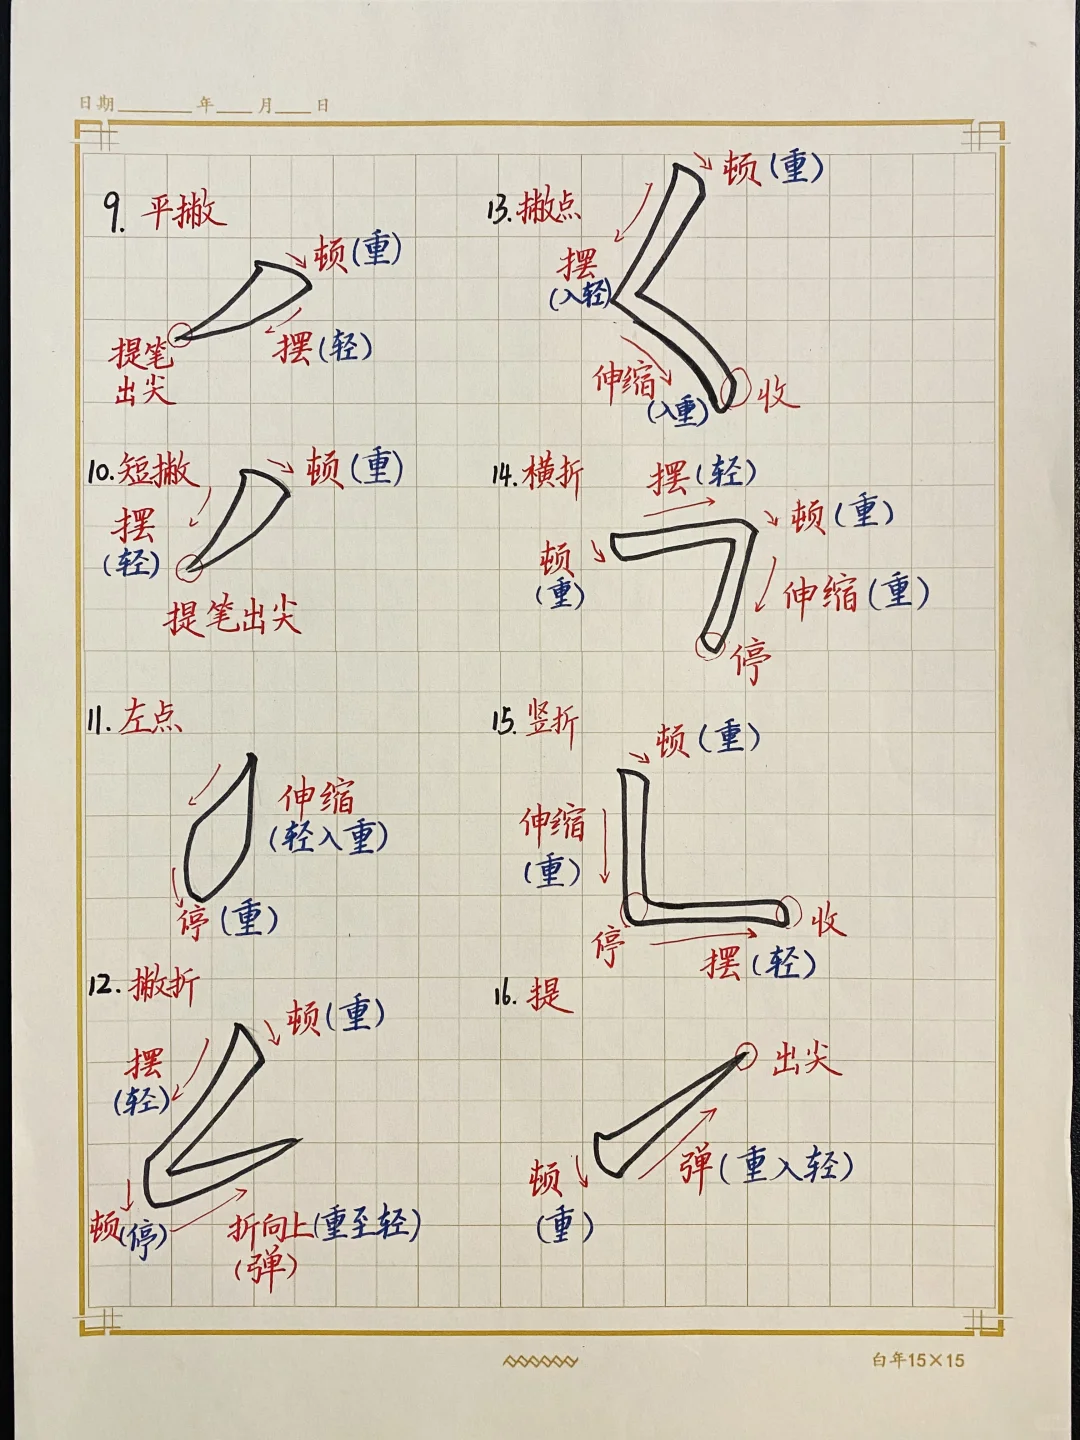 日期______年____月____日
9. 平撇
顿(重)
摆(轻)
提笔
出尖
10.短撇
顿(重)
摆
(轻)
提笔出尖
11.左点
伸缩
(轻入重)
停(重)
12.撇折
顿(重)
摆
(轻)
顿(停)
折向上(重至轻)
(弹)
13.撇点
顿(重)
摆
(入轻)
伸缩
(入重)
收
14.横折
摆(轻)
顿(重)
顿
(重)
伸缩(重)
停
15.竖折
顿(重)
伸缩
(重)
停
摆(轻)
收
16.提
出尖
弹(重入轻)
顿
(重)
白年15×15